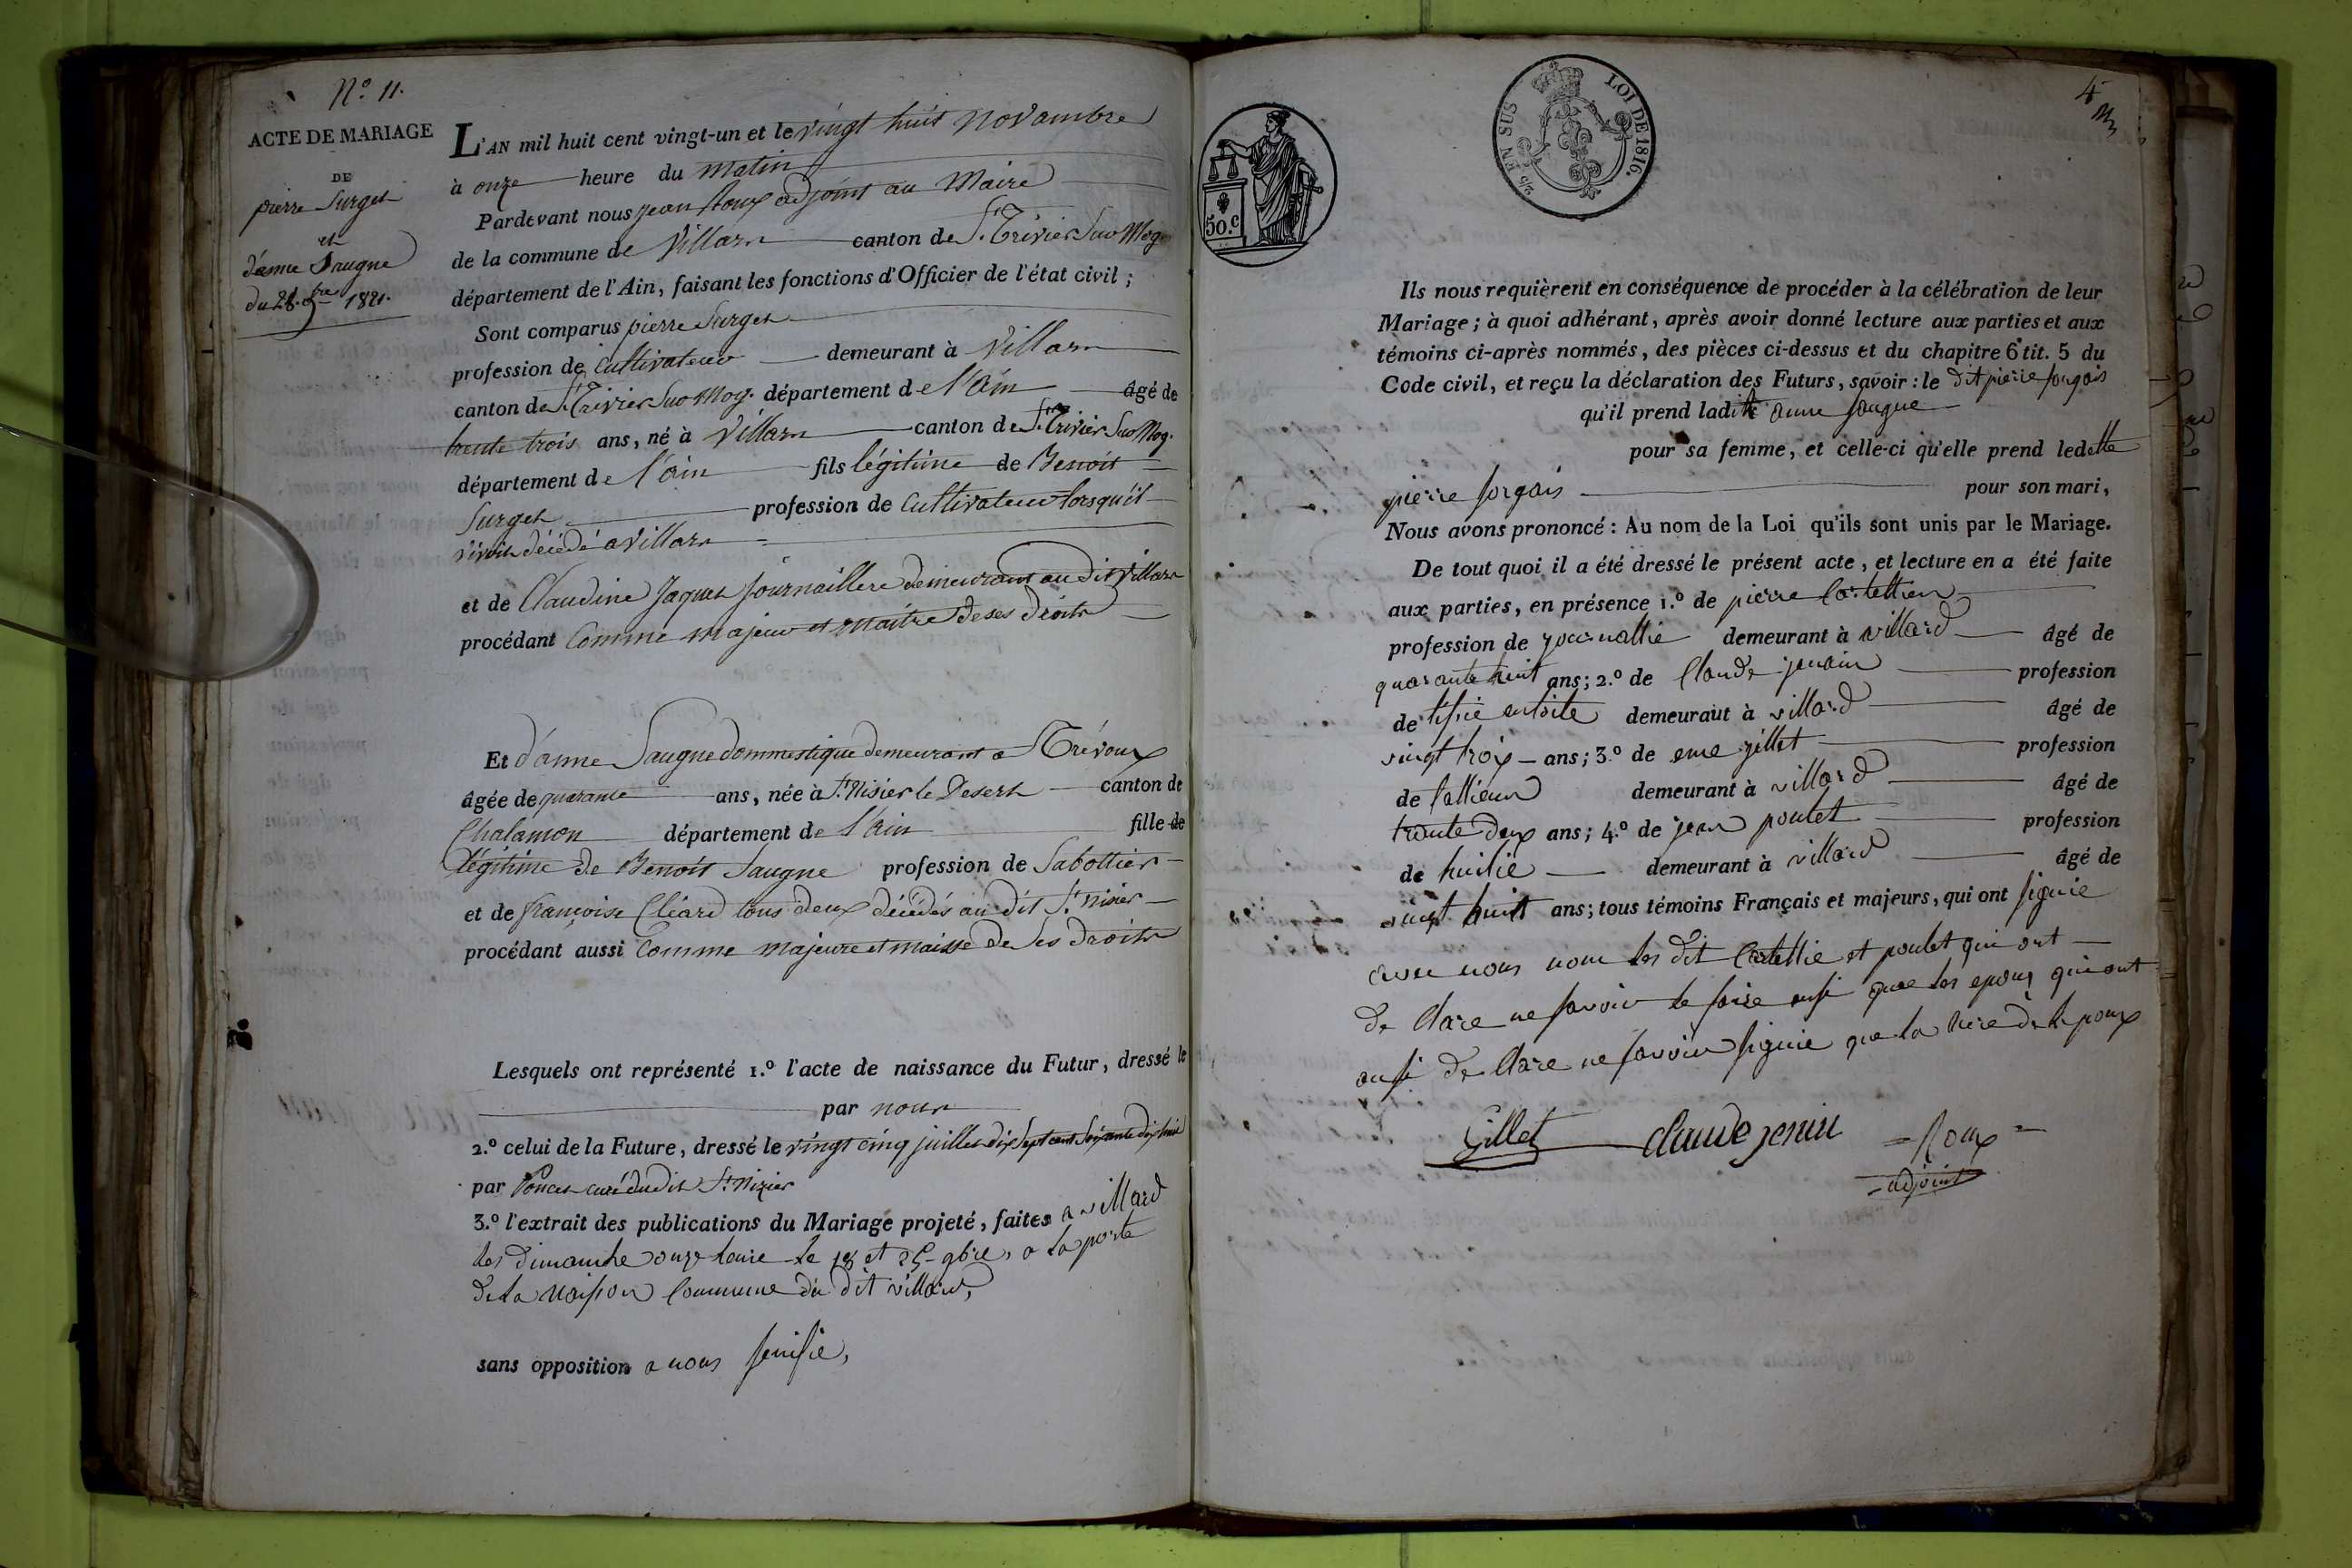 N.º 11.
ACTE DE MARIAGE
DE
pierre Surget
et
d'anne Saugne
du 28. 9bre 1821.
L'AN mil huit cent vingt-un et le vingt huit novambre
à onze heure du matin
Pardevant nous jean Roux adjoint au Maire
de la commune de Villars canton de St. Trivier Sur Mog.
département de l'Ain, faisant les fonctions d'Officier de l'état civil ;
Sont comparus pierre Surget
profession de Cultivateur demeurant à Villars
canton de St. Trivier Sur Mog. département de l'Ain âgé de
trente trois ans, né à Villars canton de St. Trivier Sur Mog.
département de l'ain fils légitime de Benoit
Surget profession de Cultivateur lorsqu'il
vivoit décédé a Villars
et de Claudine Jaquet journaillere demeurant au dit Villars
procédant Comme majeur et maitre de ses droits
Et d'anne Saugne dommestique demeurant a Trévoux
âgée de quarante ans, née à St. Nisier le Desert canton de
Chalamon département de l'Ain fille de
légitime de Benoit Saugne profession de Sabottier
et de françoise Cléard tous deux décédés au dit St. nisier
procédant aussi Comme majeure et maisse de Ses droits
Lesquels ont représenté 1.º l'acte de naissance du Futur, dressé le
par nous
2.º celui de la Future, dressé le vingt cinq juillet dix Sept cent Soixante dix huit
par Poncet curé du dit St. Nizier
3.º l'extrait des publications du Mariage projeté, faites a villard
les dimanche onze heure le 18 et 25 9bre, a la porte
de la Maison Commune du dit villard,
sans opposition a nous
50.c
LOI DE 1816.
EN SUS
4
Ils nous requièrent en conséquence de procéder à la célébration de leur
Mariage ; à quoi adhérant, après avoir donné lecture aux parties et aux
témoins ci-après nommés, des pièces ci-dessus et du chapitre 6 tit. 5 du
Code civil, et reçu la déclaration des Futurs, savoir : le dit pierre sorgois
qu'il prend ladite anne saugne
pour sa femme, et celle-ci qu'elle prend ledette
pierre sorgois pour son mari,
Nous avons prononcé : Au nom de la Loi qu'ils sont unis par le Mariage.
De tout quoi il a été dressé le présent acte, et lecture en a été faite
aux parties, en présence 1.º de pierre
profession de journallie demeurant à villard âgé de
quarante huit ans ; 2.º de Claude jenain profession
de demeurant à villard âgé de
vingt troix ans ; 3.º de gillet profession
de tallieur demeurant à villard âgé de
trante deux ans ; 4.º de jean poulet profession
de huilie demeurant à villard âgé de
vingt huit ans ; tous témoins Français et majeurs, qui ont signie
avec nous non les dit et poulet qui ont
de clare ne savoir le faire que les epoux qui ont
ausi de clare ne savoir signie que la Mere de le poux
Gillet claude jenin Roux
adjoint